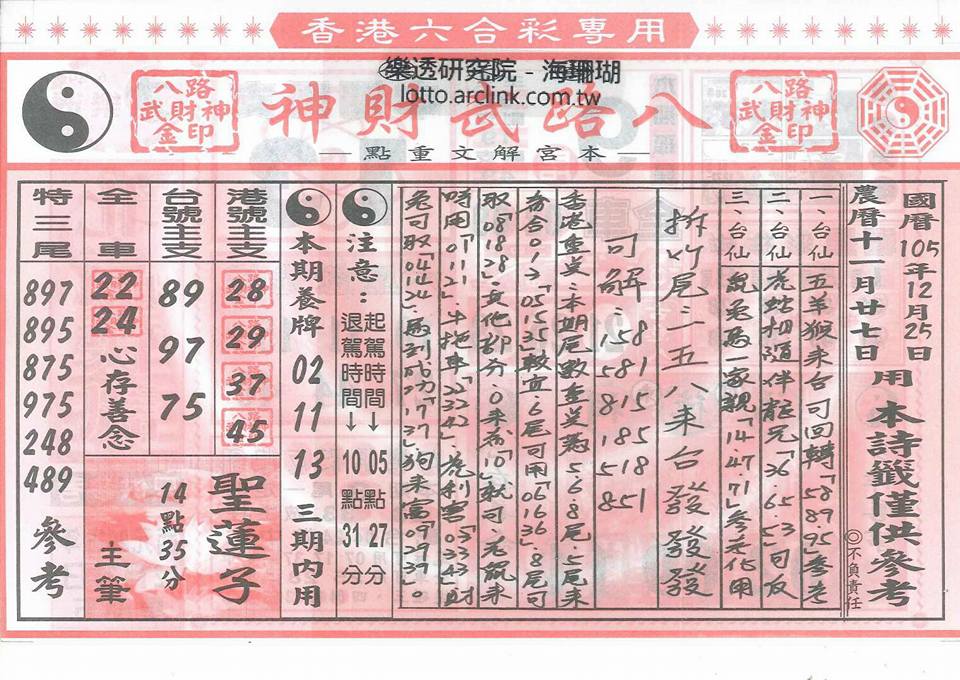 香港六合彩專用
樂透研究院 - 海珊瑚
lotto.arclink.com.tw
八路武財神
八路
財神
武財
金印
八路
財神
武財
金印
本宮解文重點
國曆105年12月25日
農曆十一月廿七日
用本詩籤僅供參考
◎不負責任
一、台仙 五羊猴来台可回轉「58.89.95」参考
二、台仙 虎蛇相隨伴龍兄「36.65.53」可反
三、台仙 鼠兔馬一家親「14.47.71」参考化用
拆竹尾二五八来台發發發
可解:158 581 815 185 518 851
香港重点:本期尾數重点為5.6.8尾.5尾来
為合0.1.3「05.15.35」較宜.6尾可用「06.16.36」.8尾可
取「08.18.28」.其他部分.0来為「10」就可.老鼠来
時用「01.11.21」.牛拖車「22.32.42」.虎利害「03.33.43」財
兔可取「04.14.24」.馬到成功「07.17.37」狗来富「09.29.39」。
注意:
起駕時間→05點27分
退駕時間→10點31分
本期養牌 02 11 13 三期內用
港號主支
28
29
37
45
聖蓮子
台號主支
89
97
75
14點35分
全車
22
24
心存善念
主筆
特三尾
897
895
875
975
248
489
參考